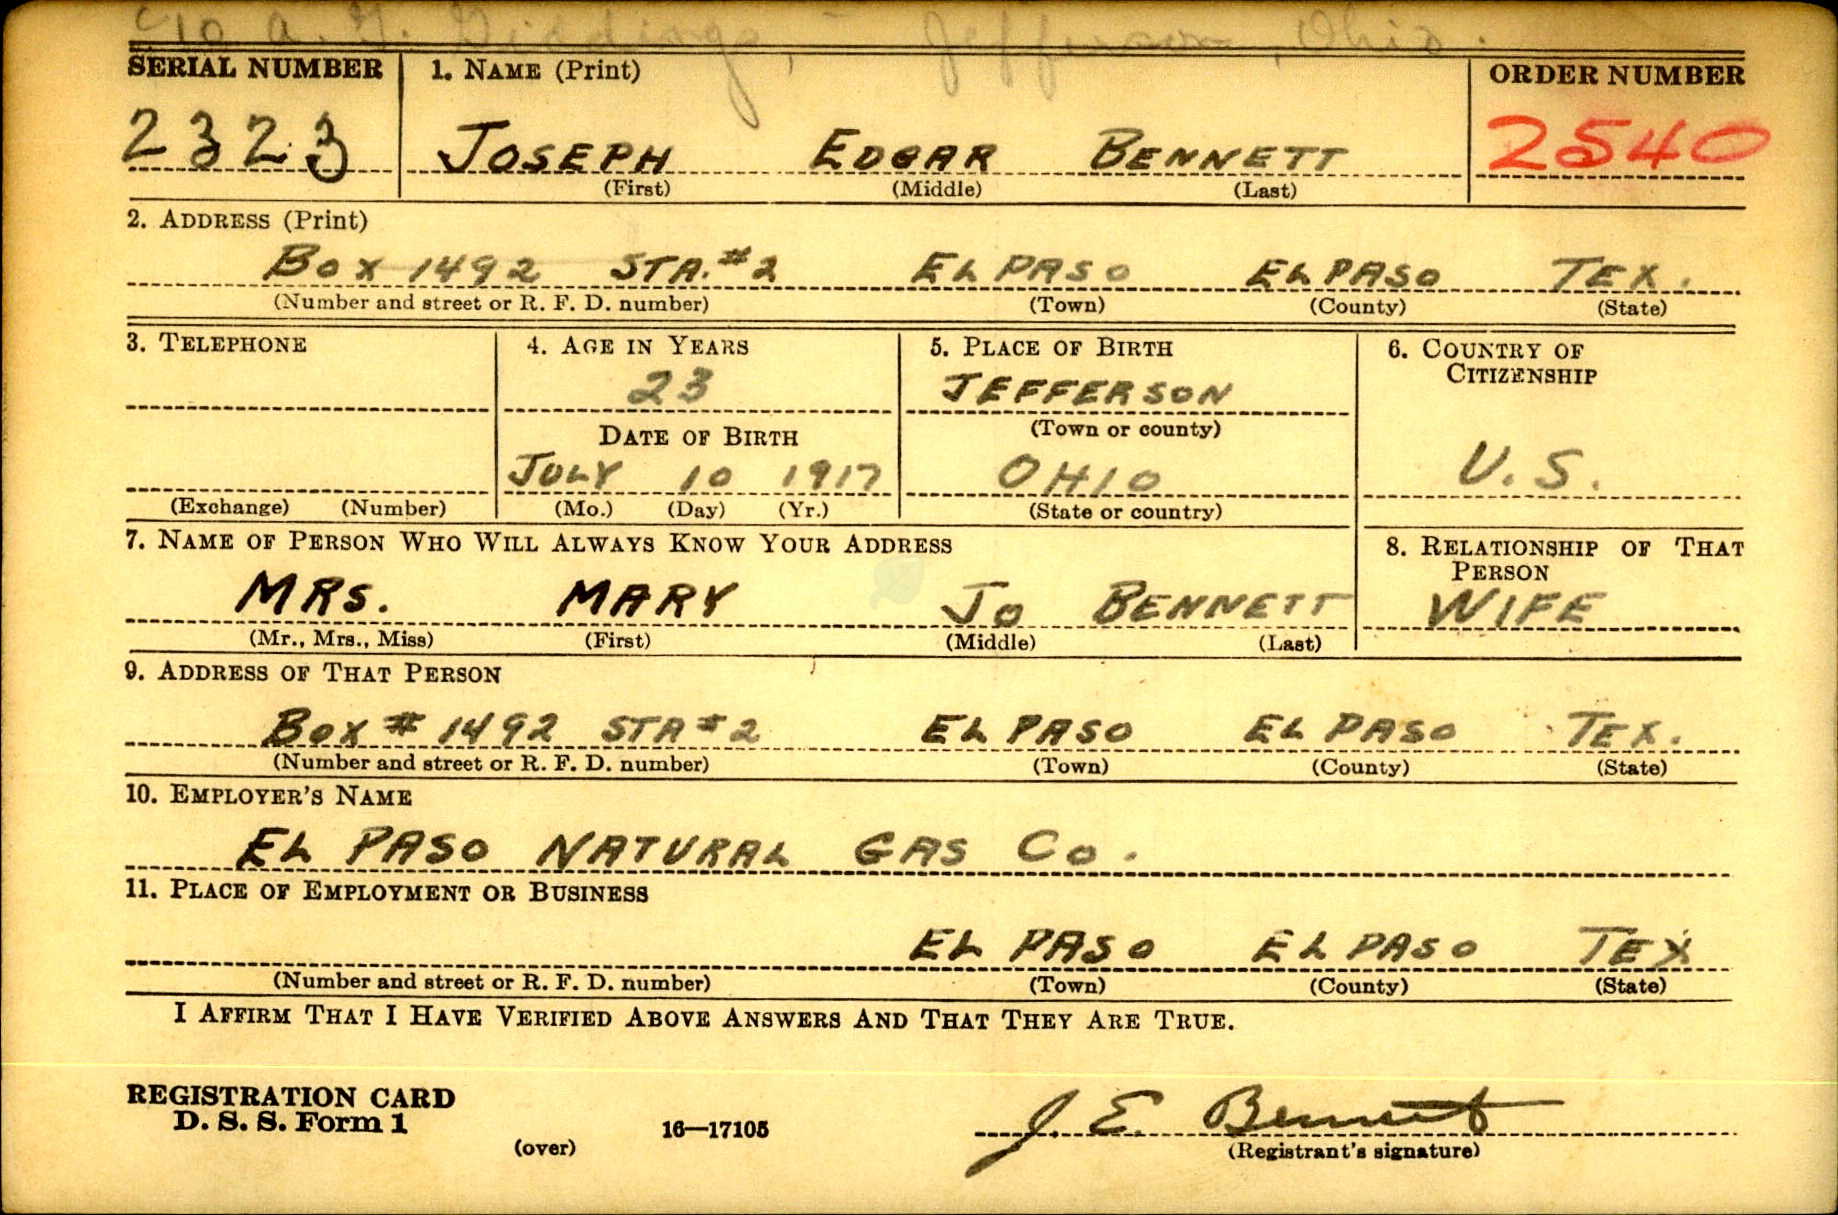 c/o A. G. Giddings, Jefferson, Ohio.
SERIAL NUMBER 1. NAME (Print) ORDER NUMBER
2323 JOSEPH EDGAR BENNETT 2540
(First) (Middle) (Last)
2. ADDRESS (Print)
BOX 1492 STA. #2 EL PASO EL PASO TEX.
(Number and street or R. F. D. number) (Town) (County) (State)
3. TELEPHONE 4. AGE IN YEARS 5. PLACE OF BIRTH 6. COUNTRY OF
CITIZENSHIP
23 JEFFERSON
DATE OF BIRTH (Town or county)
JULY 10 1917 OHIO U.S.
(Exchange) (Number) (Mo.) (Day) (Yr.) (State or country)
7. NAME OF PERSON WHO WILL ALWAYS KNOW YOUR ADDRESS 8. RELATIONSHIP OF THAT
PERSON
MRS. MARY JO BENNETT WIFE
(Mr., Mrs., Miss) (First) (Middle) (Last)
9. ADDRESS OF THAT PERSON
BOX # 1492 STA #2 EL PASO EL PASO TEX.
(Number and street or R. F. D. number) (Town) (County) (State)
10. EMPLOYER'S NAME
EL PASO NATURAL GAS CO.
11. PLACE OF EMPLOYMENT OR BUSINESS
EL PASO EL PASO TEX
(Number and street or R. F. D. number) (Town) (County) (State)
I AFFIRM THAT I HAVE VERIFIED ABOVE ANSWERS AND THAT THEY ARE TRUE.
REGISTRATION CARD
D. S. S. Form 1 16—17105 J. E. Bennett
(over) (Registrant's signature)